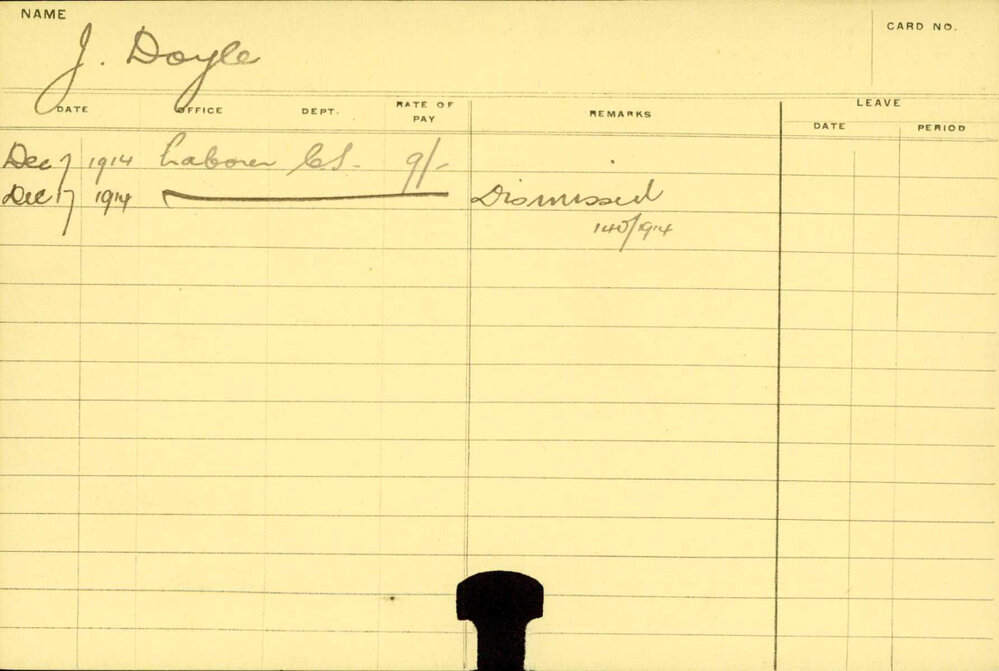 NAME
J. Doyle
CARD NO.
DATE OFFICE DEPT. RATE OF PAY REMARKS LEAVE
DATE PERIOD
Dec 7 1914 Laborer C.S. 9/-
Dec 17 1914 Dismissed
/1914